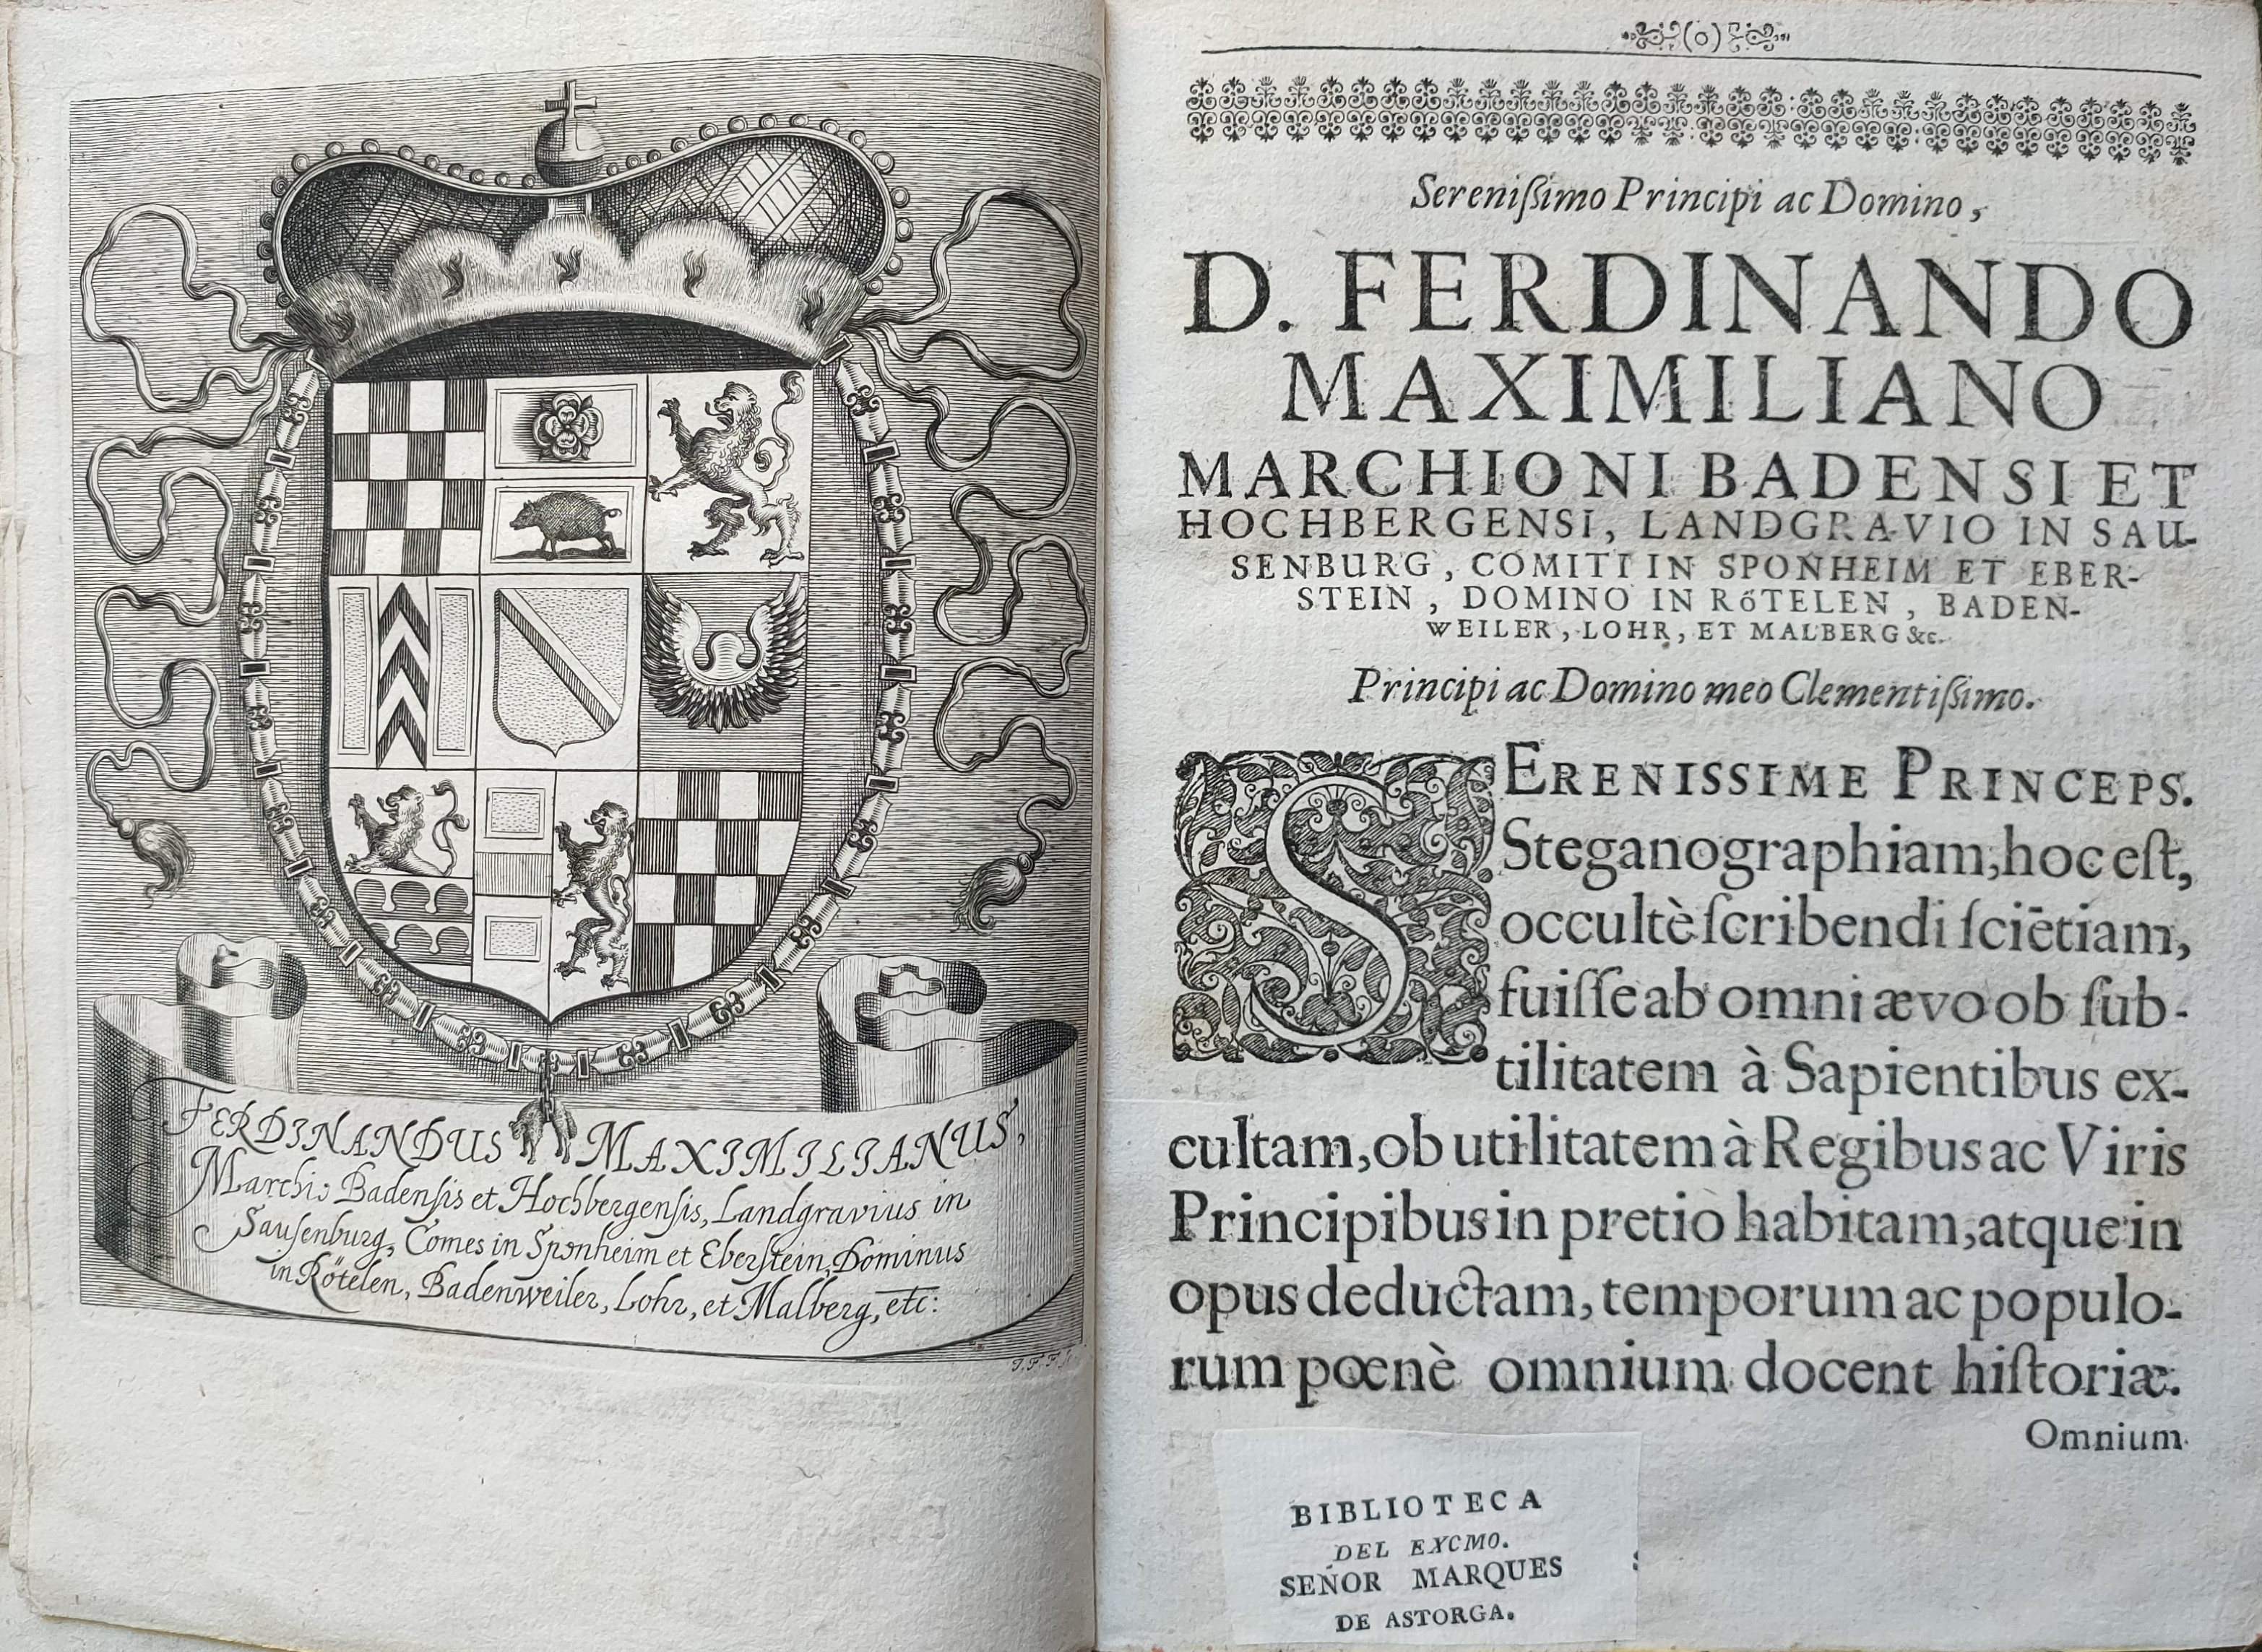 FERDINANDUS MAXIMILIANUS,
Marchio Badensis et Hochbergensis, Landgravius in
Sausenburg, Comes in Sponheim et Eberstein, Dominus
in Rötelen, Badenweiler, Lohr, et Malberg, etc:
(o)
Sereniſsimo Principi ac Domino,
D. FERDINANDO
MAXIMILIANO
MARCHIONI BADENSI ET
HOCHBERGENSI, LANDGRAVIO IN SAU-
SENBURG, COMITI IN SPONHEIM ET EBER-
STEIN, DOMINO IN RöTELEN, BADEN-
WEILER, LOHR, ET MALBERG &c.
Principi ac Domino meo Clementiſsimo.
SERENISSIME PRINCEPS.
Steganographiam, hoc eſt,
occultè ſcribendi ſciētiam,
fuiſſe ab omni ævo ob ſub-
tilitatem à Sapientibus ex-
cultam, ob utilitatem à Regibus ac Viris
Principibus in pretio habitam, atque in
opus deductam, temporum ac populo-
rum pœnè omnium docent hiſtoriæ.
Omnium
BIBLIOTECA
DEL EXCMO.
SEÑOR MARQUES
DE ASTORGA.